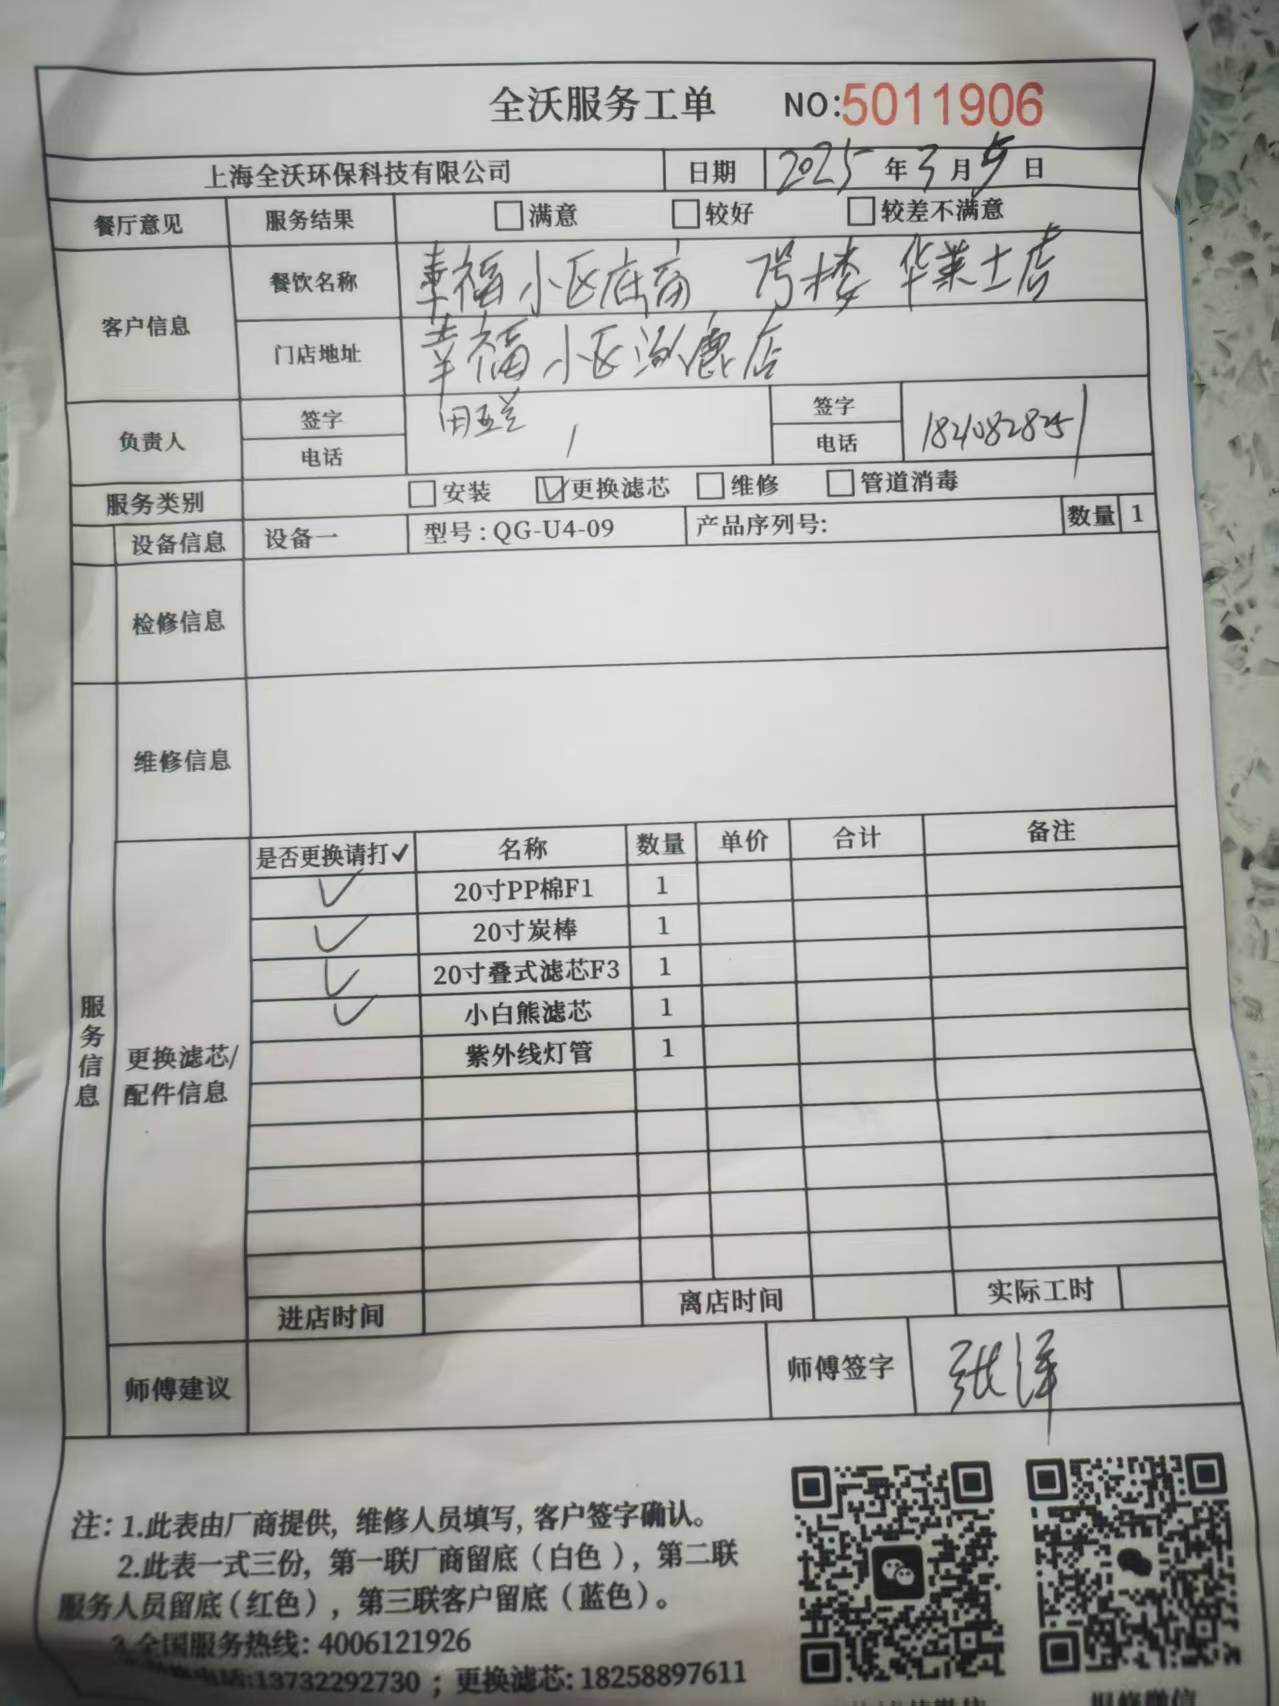 全沃服务工单 NO:5011906
上海全沃环保科技有限公司 日期 2025年3月5日
餐厅意见 服务结果 满意 较好 较差不满意
客户信息 餐饮名称 幸福小区底商 7号楼 华莱士店
门店地址 幸福小区涿鹿店
负责人 签字 田玉兰 签字
电话 电话 18210828251
服务类别 安装 更换滤芯 维修 管道消毒
设备信息 设备一 型号:QG-U4-09 产品序列号: 数量 1
检修信息
维修信息
服务信息
更换滤芯/配件信息
是否更换请打✓ 名称 数量 单价 合计 备注
✓ 20寸PP棉F1 1
✓ 20寸炭棒 1
✓ 20寸叠式滤芯F3 1
✓ 小白熊滤芯 1
紫外线灯管 1
进店时间 离店时间 实际工时
师傅建议 师傅签字 张泽
注:1.此表由厂商提供,维修人员填写,客户签字确认。
2.此表一式三份,第一联厂商留底(白色),第二联
服务人员留底(红色),第三联客户留底(蓝色)。
3.全国服务热线:4006121926
电话:13732292730;更换滤芯:18258897611